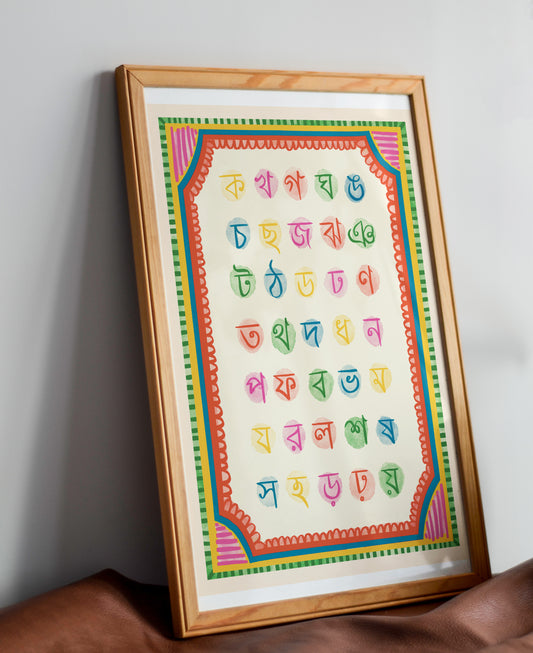 ক খ গ ঘ ঙ
চ ছ জ ঝ ঞ
ট ঠ ড ঢ ণ
ত থ দ ধ ন
প ফ ব ভ ম
য র ল শ ষ
স হ ড় ঢ় য়